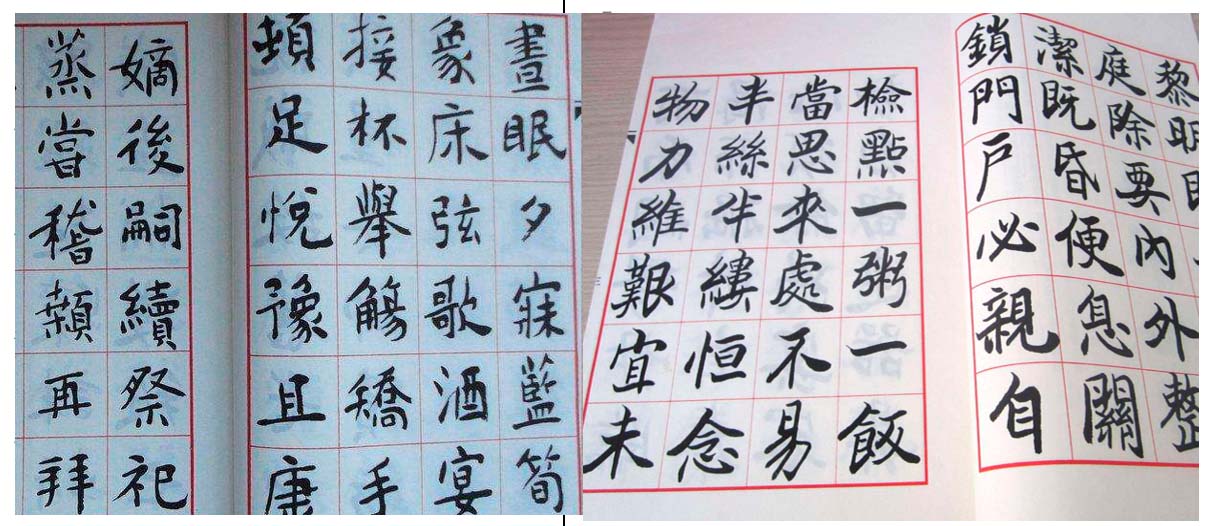 晝眠夕寐藍筍
象床弦歌酒宴
接杯舉觴矯手
頓足悅豫且康
嫡後嗣續祭祀
蒸嘗稽顙再拜
黎明即
庭除要內外整
潔既昏便息關
鎖門戶必親自
檢點一粥一飯
當思來處不易
半絲半縷恒念
物力維艱宜未